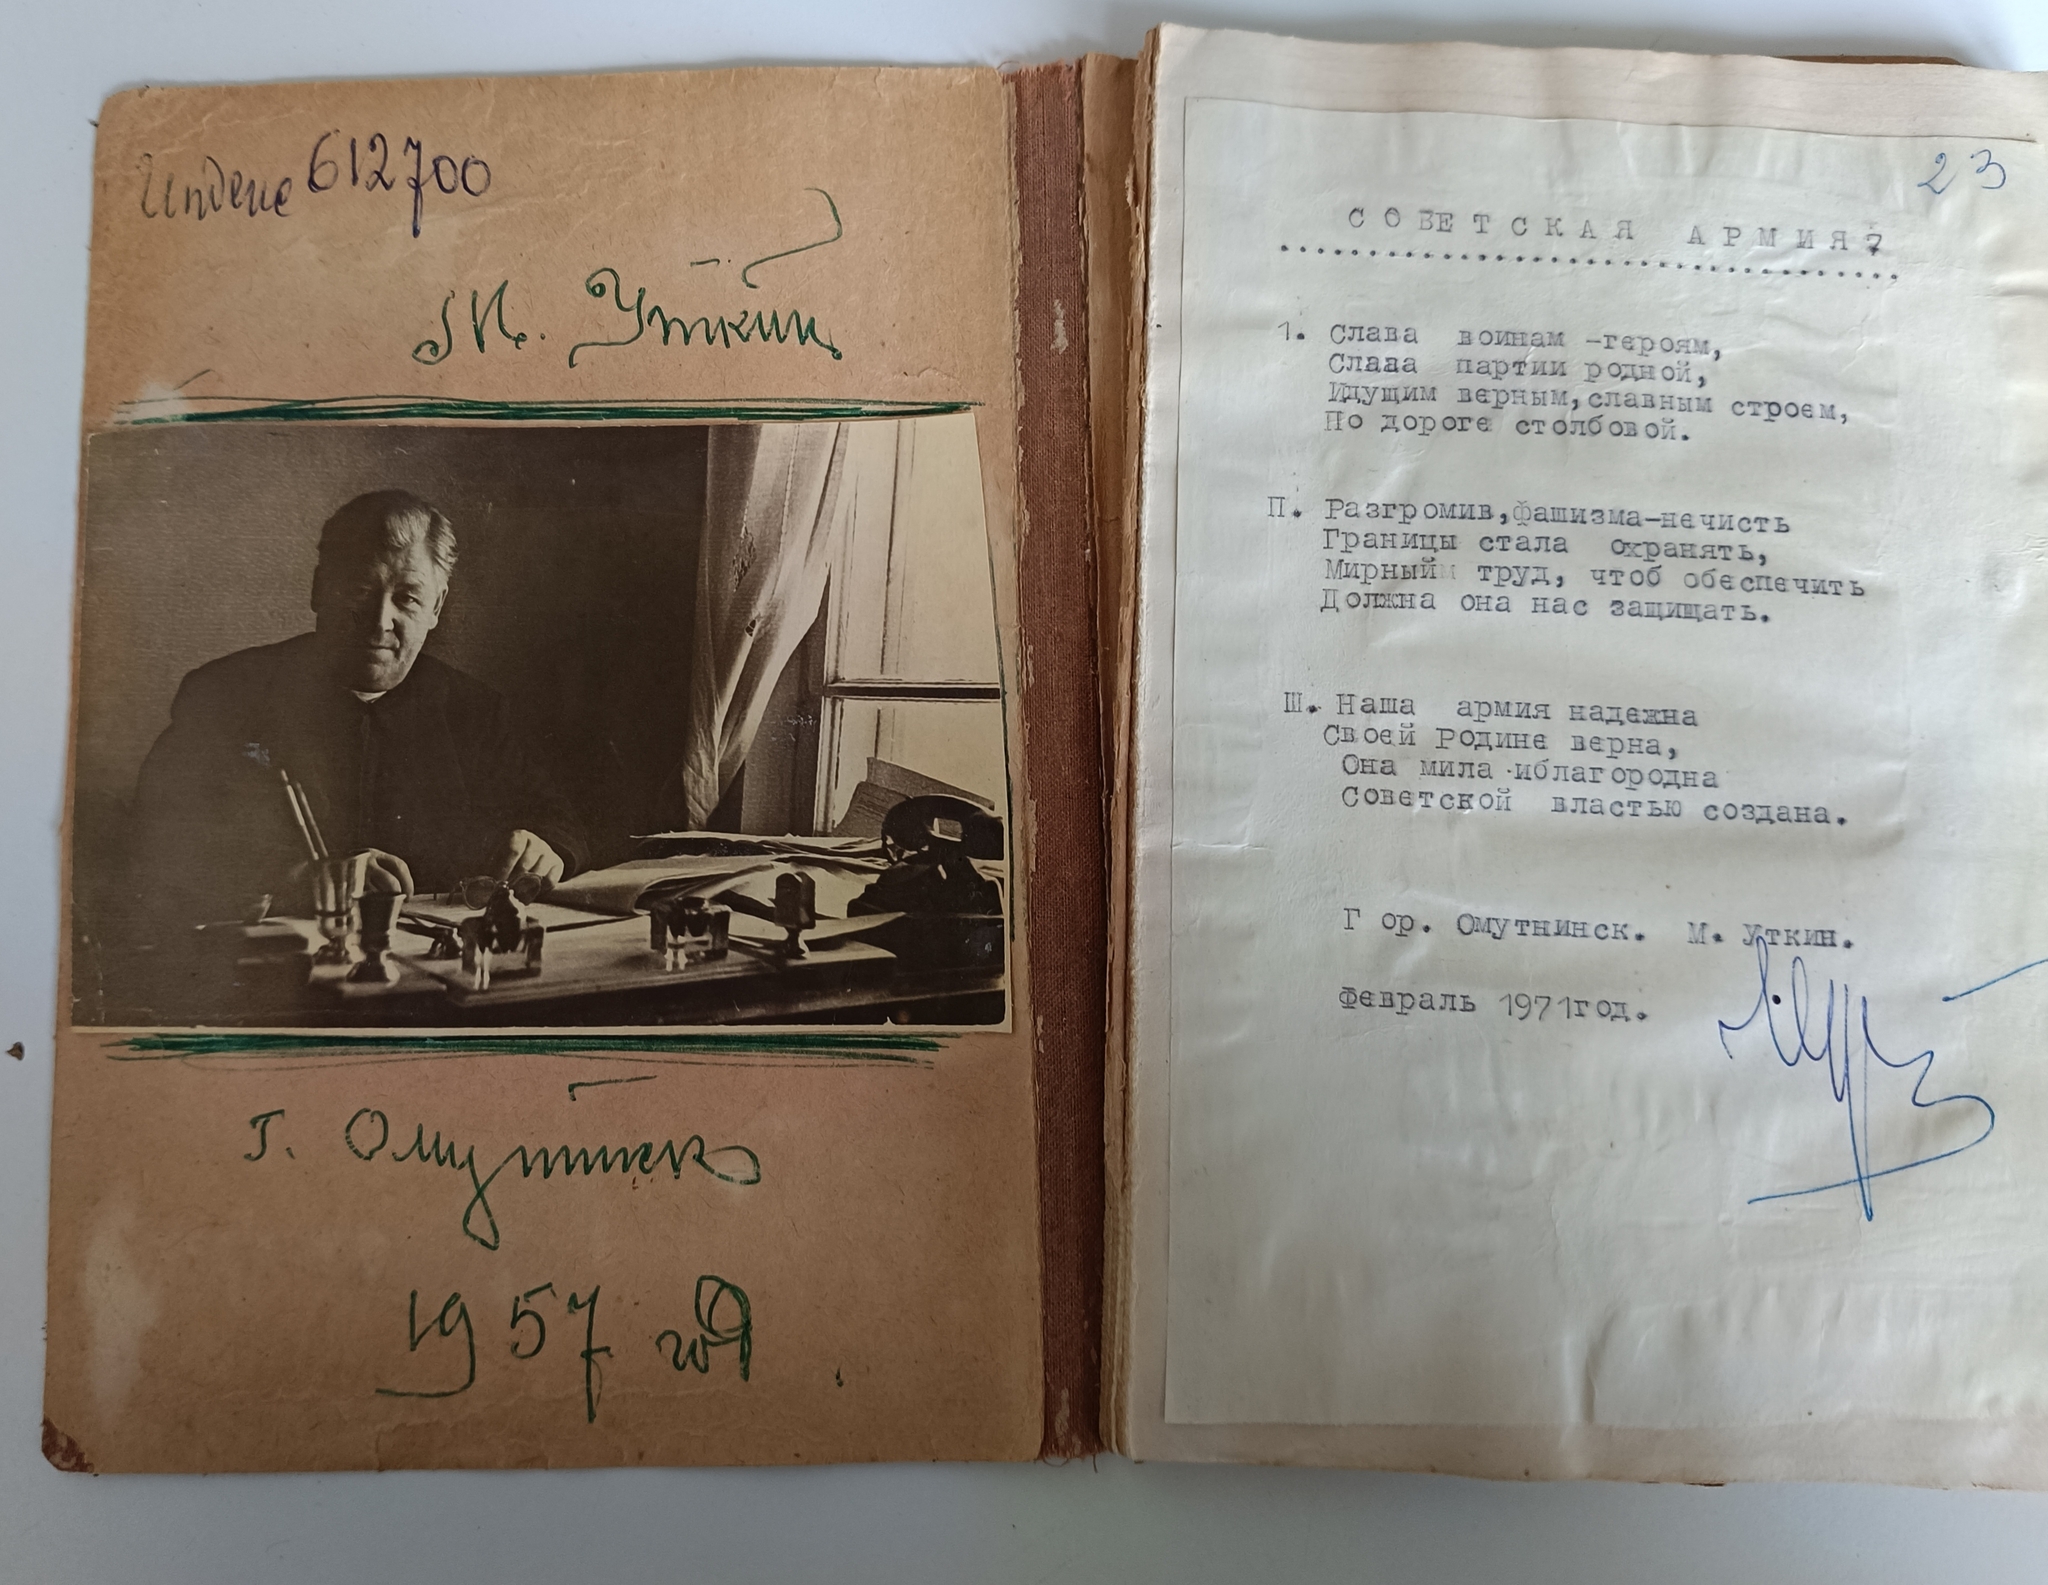 Индекс 612700
М. Уткин
г. Омутнинск
1957 год.
23
СОВЕТСКАЯ АРМИЯ?
1. Слава воинам -героям,
Слава партии родной,
Идущим верным,славным строем,
По дороге столбовой.
П. Разгромив,фашизма-нечисть
Границы стала охранять,
Мирный труд, чтоб обеспечить
Должна она нас защищать.
Ш. Наша армия надежна
Своей Родине верна,
Она мила иблагородна
Советской властью создана.
Гор. Омутнинск. М. Уткин.
Февраль 1971год.